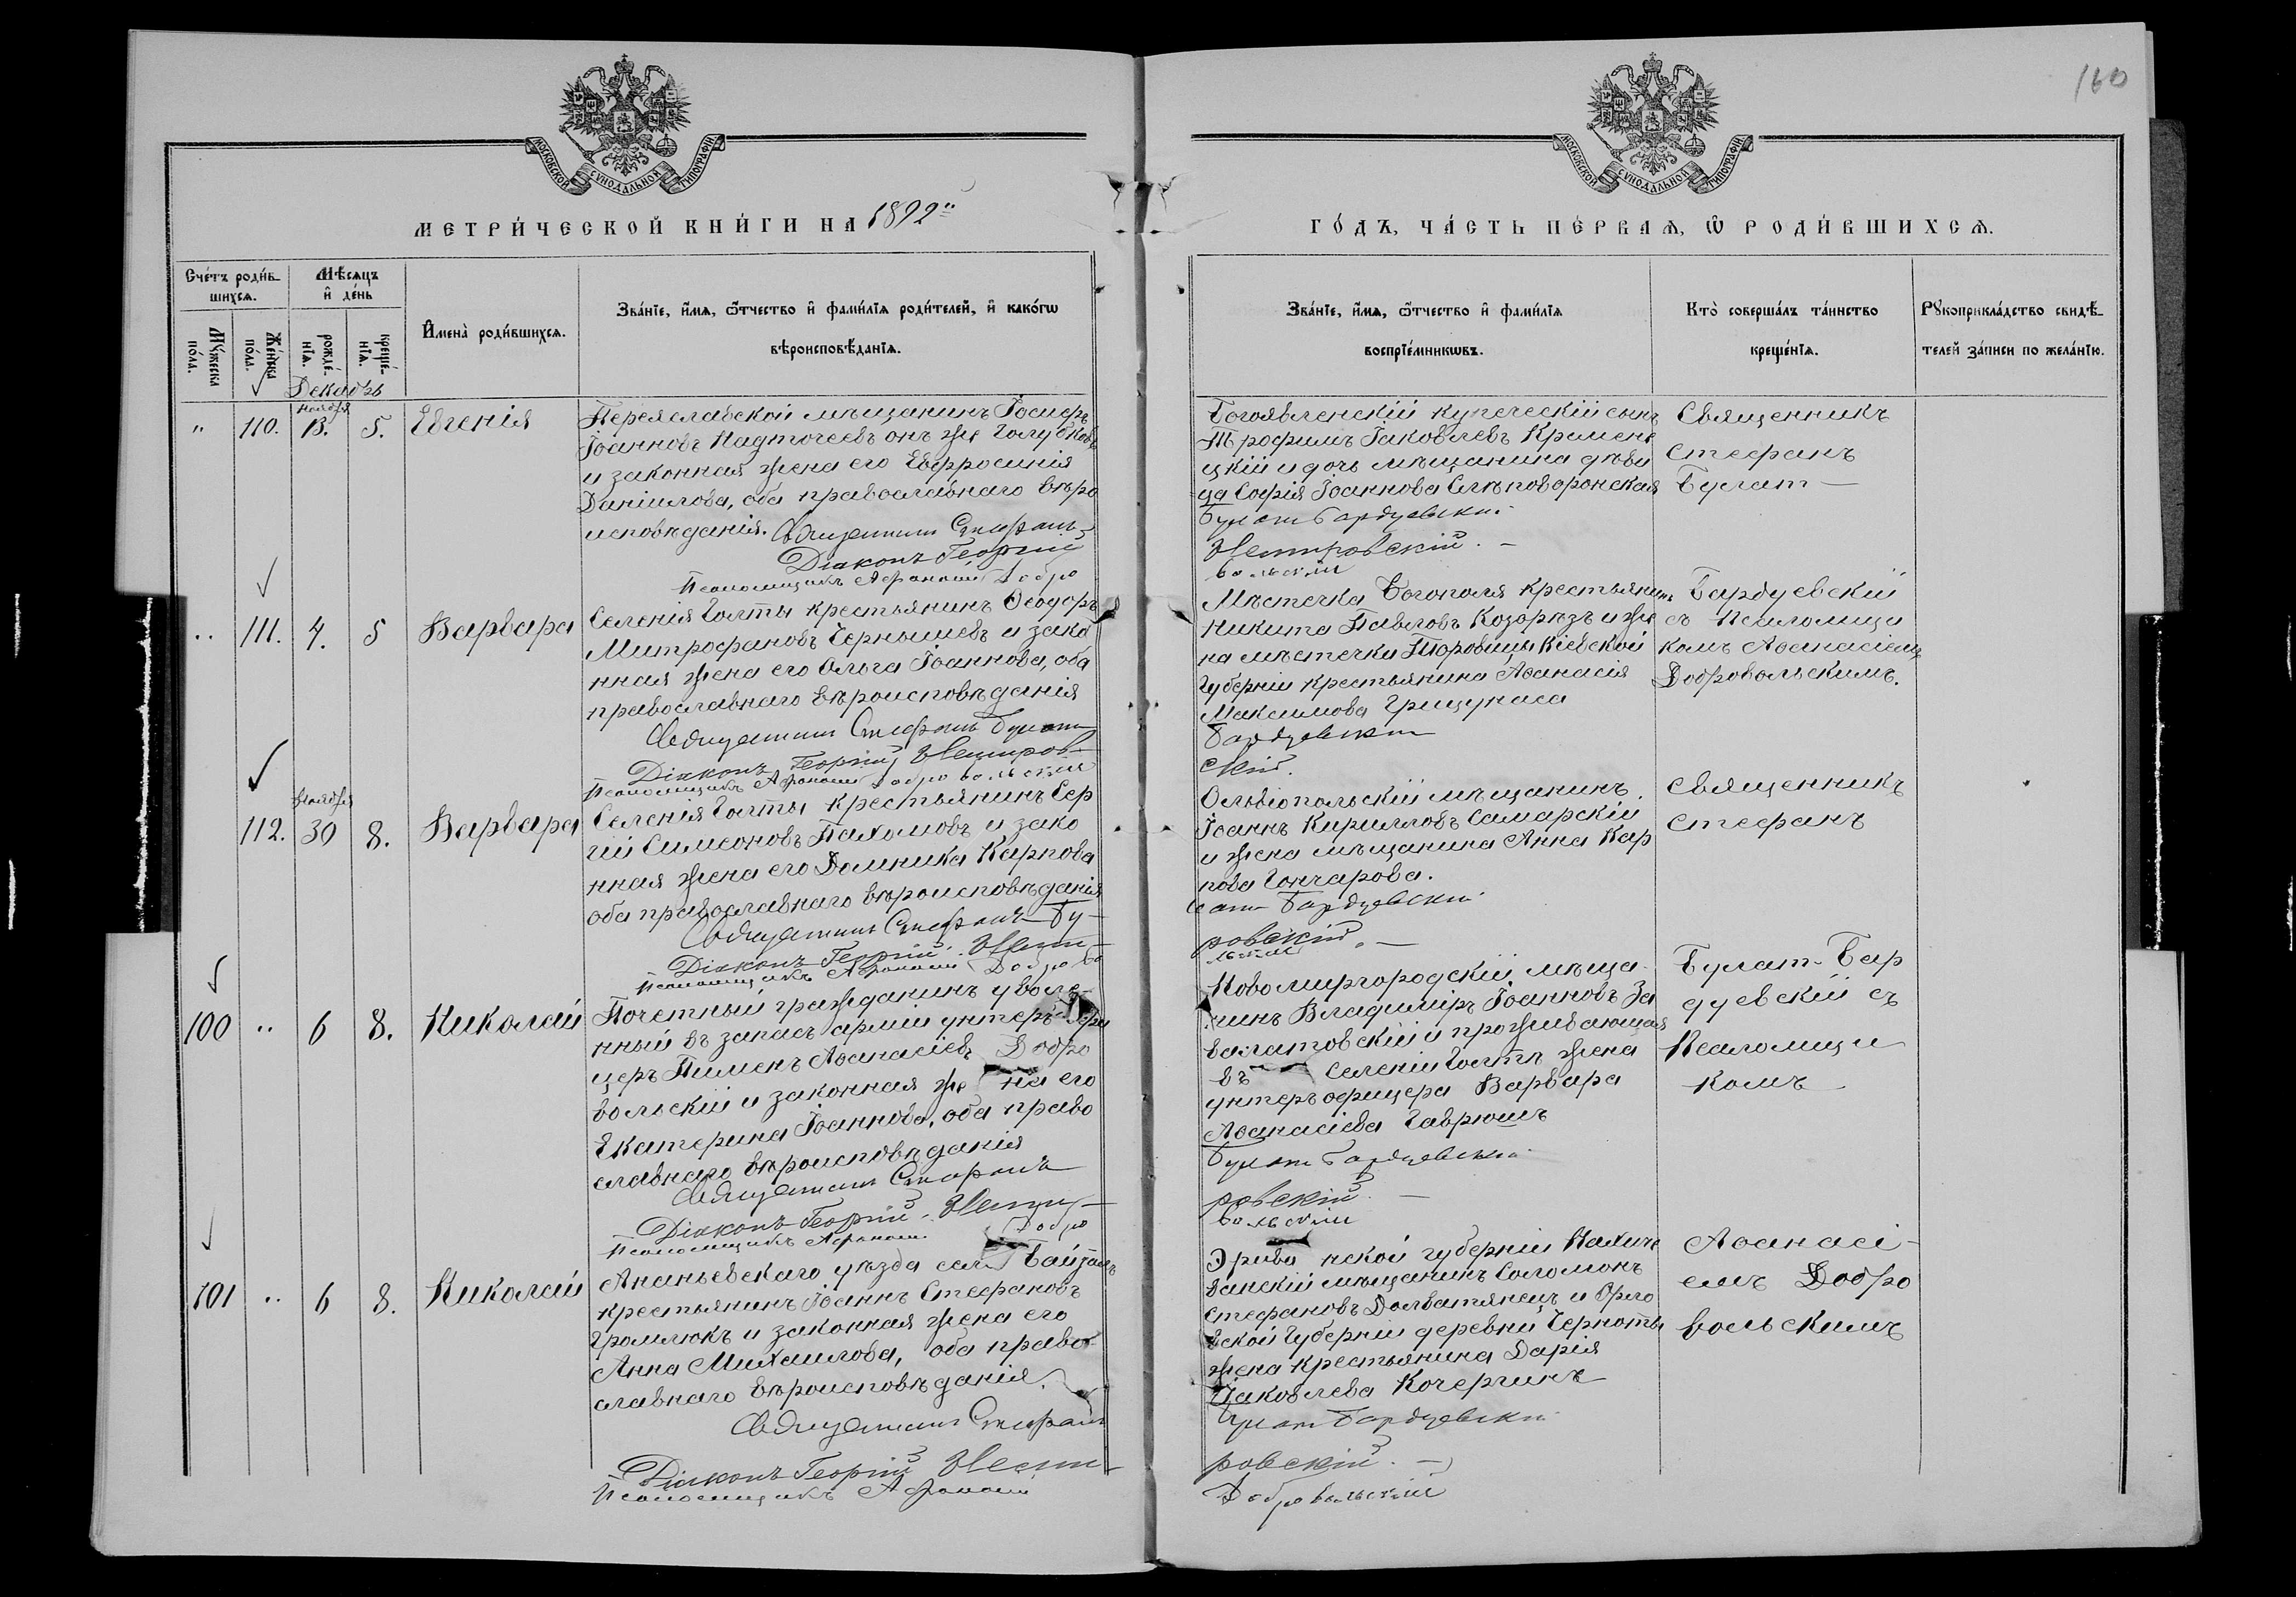 160
МОСКОВСКОЙ СУНОДАЛЬНОЙ ТИПОГРАФІИ
МОСКОВСКОЙ СУНОДАЛЬНОЙ ТИПОГРАФІИ
МЕТРИ́ЧЕСКОЙ КНИ́ГИ НА 1892й
ГО́ДЪ, ЧА́СТЬ ПЕ́РВАѦ, Ѽ РОДИ́ВШИХСѦ.
Сче́тъ роди́в-
шихсѧ.
Мѣ́сѧцъ
и҆ де́нь
Мꙋ́жеска по́ла.
Же́нска по́ла.
рожде́нїѧ.
креще́нїѧ.
И҆мена̀ роди́вшихсѧ.
Зва́нїе, и҆́мѧ, ѻ҆́тчество и҆ фами́лїѧ роди́телей, и҆ како́гѡ
вѣроисповѣ́данїѧ.
Зва́нїе, и҆́мѧ, ѻ҆́тчество и҆ фами́лїѧ
воспрїе́мникѡвъ.
Кто̀ соверша́лъ та́инство
креще́нїѧ.
Рꙋкоприкла́дство свидѣ́-
телей за́писи по жела́нїю.
Декабрь
Ноября
" 110. 13. 5. Евгенія
Переяславской мѣщанинъ
Іоанновъ Надточеевъ онъ же
и законная жена его Евфросинія
Даніилова, оба православнаго вѣро
исповѣданія. Священникъ Стефанъ
Діаконъ Георгій
Псаломщикъ Афанасій Добро
Богоявленскій купеческій сынъ
Трофимъ Іаковлевъ Кремене
цкій и дочь мѣщанина дѣви
ца Софія Іоаннова Слѣповоронская
Булат Бардуевскій
Нестровскій. -
вольскій
Священникъ
Стефанъ
Булат-
" 111. 4. 5 Варвара
Селенія Голты крестьянинъ Ѳеодоръ
Митрофановъ Чернышевъ и зако
нная жена его Ольга Іоаннова, оба
православнаго вѣроисповѣданія
Священникъ Стефанъ Булат
Діаконъ Георгій Нестров
Псаломщикъ Афанасій Добровольскій
Мѣстечка Богополя крестьянинъ
Никита Павловъ Козорѣзъ и же
на мѣстечка Кіевской
губерніи крестьянина Аѳанасія
Максимова
Бардуевскій
скій.
Бардуевскій
съ Псаломщи
комъ Аѳанасіемъ
Добровольскимъ.
Ноября
112. 30 8. Варвара
Селенія Голты крестьянинъ Сер
гій Симеоновъ Пахомовъ и зако
нная жена его Домника Карпова
оба православнаго вѣроисповѣданія
Священникъ Стефанъ Бу-
Діаконъ Георгій Нест-
Псаломщикъ Афанасій Доброво
Ольвіопольскій мѣщанинъ
Іоаннъ Кирилловъ Самарскій
и жена мѣщанина Анна Кар
пова Гончарова.
лат Бардуевскій
ровскій. -
льскій
Священникъ
Стефанъ
100 " 6 8. Николай
Почетный гражданинъ уволе-
нный въ запасъ арміи унтеръ офи
церъ Пименъ Аѳанасіевъ Добро
вольскій и законная жена его
Екатерина Іоаннова, оба право
славнаго вѣроисповѣданія
Священникъ Стефанъ
Діаконъ Георгій Нест-
Псаломщикъ Афанасій Добро
Новомиргородскій мѣща
нинъ Владиміръ Іоанновъ За
валатовскій и проживающая
въ селеніи Голтѣ жена
унтеръ офицера Варвара
Аѳанасіева Гаврюшъ
Булат Бардуевскій
ровскій. -
вольскій
Булат-Бар
дуевскій съ
Псаломщи
комъ
101 " 6 8. Николай
Ананьевскаго уѣзда села
крестьянинъ Іоаннъ Стефановъ
Громлюкъ и законная жена его
Анна Михаилова, оба право-
славнаго вѣроисповѣданія.
Священникъ Стефанъ
Діаконъ Георгій Нест-
Псаломщикъ Афанасій
Эриванской губерніи Нахиче
ванскій мѣщанинъ Соломонъ
Стефановъ и Орло
вской губерніи деревни
жена крестьянина Дарія
Іаковлева Кочергинъ
Булат Бардуевскій
ровскій. -
Добровольскій
Аѳанасі-
емъ Добро
вольскимъ